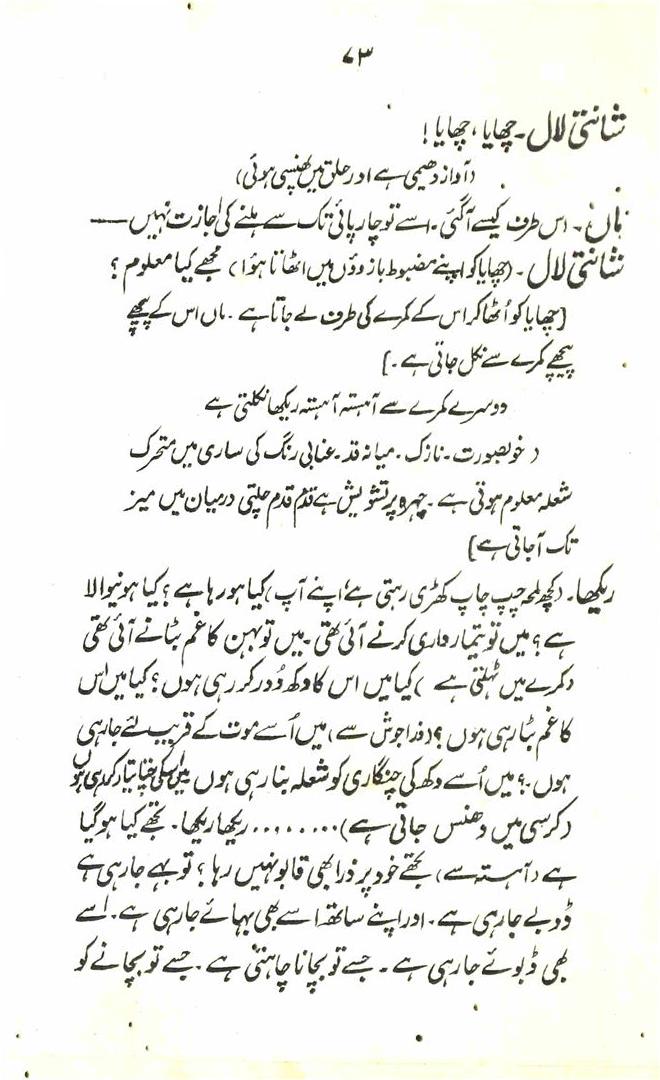 ۷۳
شانتی لال۔ چھایا، چھایا!
(آواز دھیمی ہے اور حلق میں پھنسی ہوئی)
ماں۔ اس طرف کیسے آگئی۔ اسے تو چارپائی تک سے ہلنے کی اجازت نہیں ——
شانتی لال۔ (چھایا کو اپنے مضبوط بازوؤں میں اٹھاتا ہؤا) مجھے کیا معلوم ؟
[چھایا کو اُٹھا کر اس کے کمرے کی طرف لے جاتا ہے ۔ ماں اس کے پیچھے
پیچھے کمرے سے نکل جاتی ہے ۔]
دوسرے کمرے سے آہستہ آہستہ ریکھا نکلتی ہے
( خوبصورت۔ نازک ۔ میانہ قد ۔ عنابی رنگ کی ساری میں متحرک
شعلہ معلوم ہوتی ہے ۔ چہرہ پر تشویش ہے قدم قدم چلتی درمیان میں میز
تک آجاتی ہے]
ریکھا۔ (کچھ لمحہ چپ چاپ کھڑی رہتی ہے، اپنے آپ) کیا ہو رہا ہے ؟ کیا ہونیوالا
ہے ؟ میں تو تیمارداری کرنے آئی تھی ۔ میں تو بہن کا غم بٹانے آئی تھی
(کمرے میں ٹہلتی ہے ) کیا میں اس کا دکھ دُور کر رہی ہوں ؟ کیا میں اس
کا غم بٹا رہی ہوں ؟ (ذرا جوش سے) میں اُسے موت کے قریب لئے جارہی
ہوں ۔؟ میں اُسے دکھ کی چنگاری کو شعلہ بنا رہی ہوں میں اسکی چتا تیار کر رہی ہوں
(کرسی میں دھنس جاتی ہے) ........ ریکھا ریکھا۔ تجھے کیا ہوگیا
ہے (آہستہ سے) تجھے خود پر ذرا بھی قابو نہیں رہا ؟ تو بہے جارہی ہے
ڈوبے جارہی ہے ۔ اور اپنے ساتھ اسے بھی بہائے جارہی ہے ۔ اسے
بھی ڈبوئے جارہی ہے ۔ جسے تو بچانا چاہتی ہے ۔ جسے تو بچانے کو